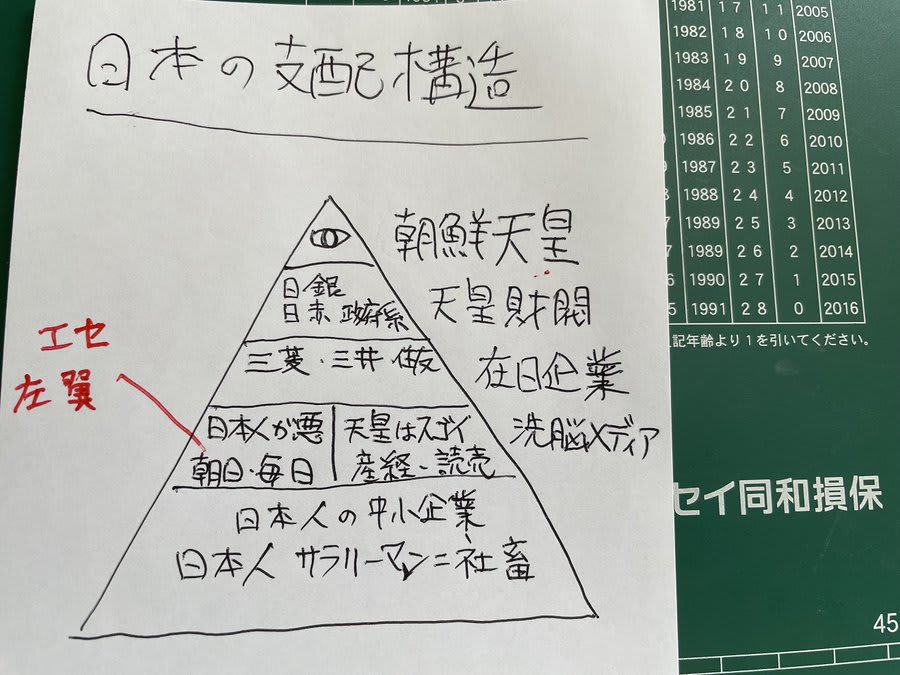 日本の支配構造
朝鮮天皇
日銀
日赤 政府系
天皇財閥
三菱・三井 住友
在日企業
エセ
左翼
日本人が悪
朝日・毎日
天皇はスゴイ
産経・読売
洗脳メディア
日本人の中小企業
日本人 サラリーマン=社畜
1981 17 11 2005
1982 18 10 2006
1983 19 9 2007
1984 20 8 2008
1985 21 7 2009
1986 22 6 2010
1987 23 5 2011
1988 24 4 2012
1989 25 3 2013
1989 26 2 2014
1990 27 1 2015
1991 28 0 2016
記年齢より1を引いてください。
セイ同和損保
45